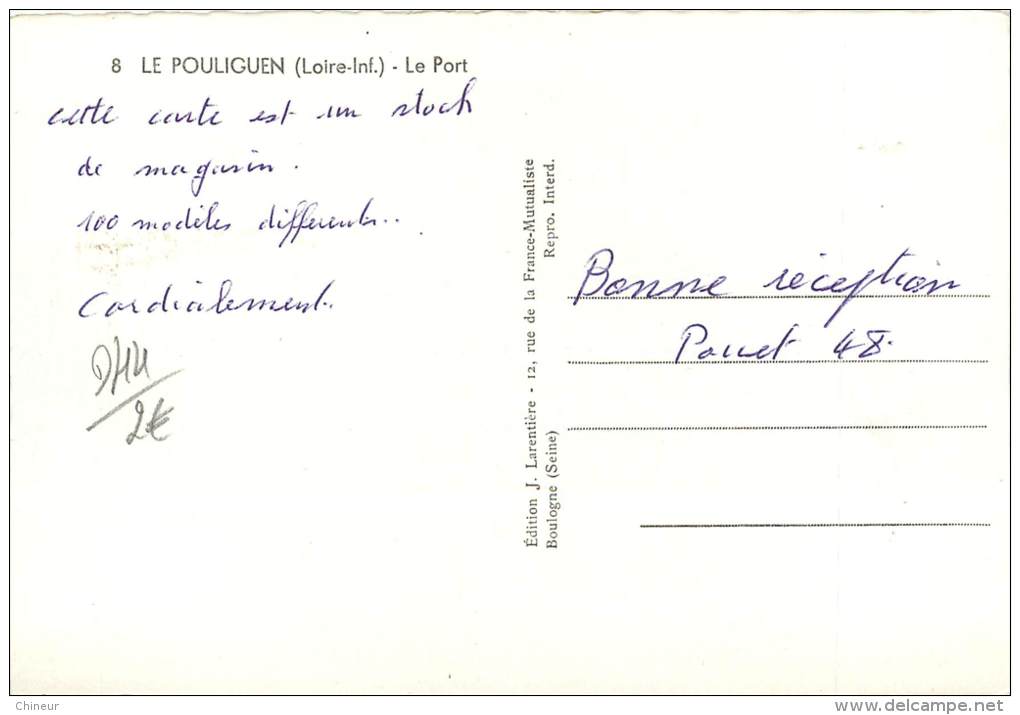 8 LE POULIGUEN (Loire-Inf.) - Le Port
cette carte est un stock
de magasin.
100 modèles differents..
Cordialement.
2€
Édition J. Larentière - 12, rue de la France-Mutualiste
Boulogne (Seine) Repro. Interd.
Bonne réception
48.
Chineur
www.delcampe.net